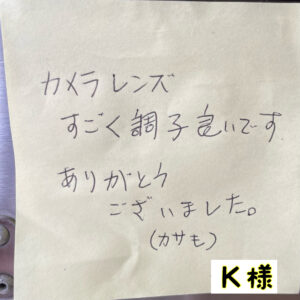 カメラレンズ
すごく調子良いです
ありがとう
ございました。
(カサも)
K様